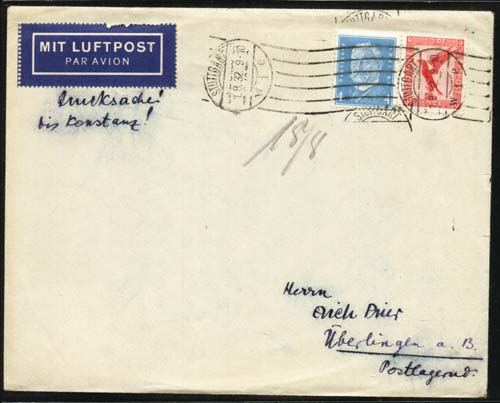 MIT LUFTPOST
PAR AVION
Drucksache!
bis Konstanz!
STUTTGART
.8.32.9-10
STUTTGART
10 PF
STUTTGART
15/8
Herrn
Erich
Überlingen a. B.
Postlagernd.